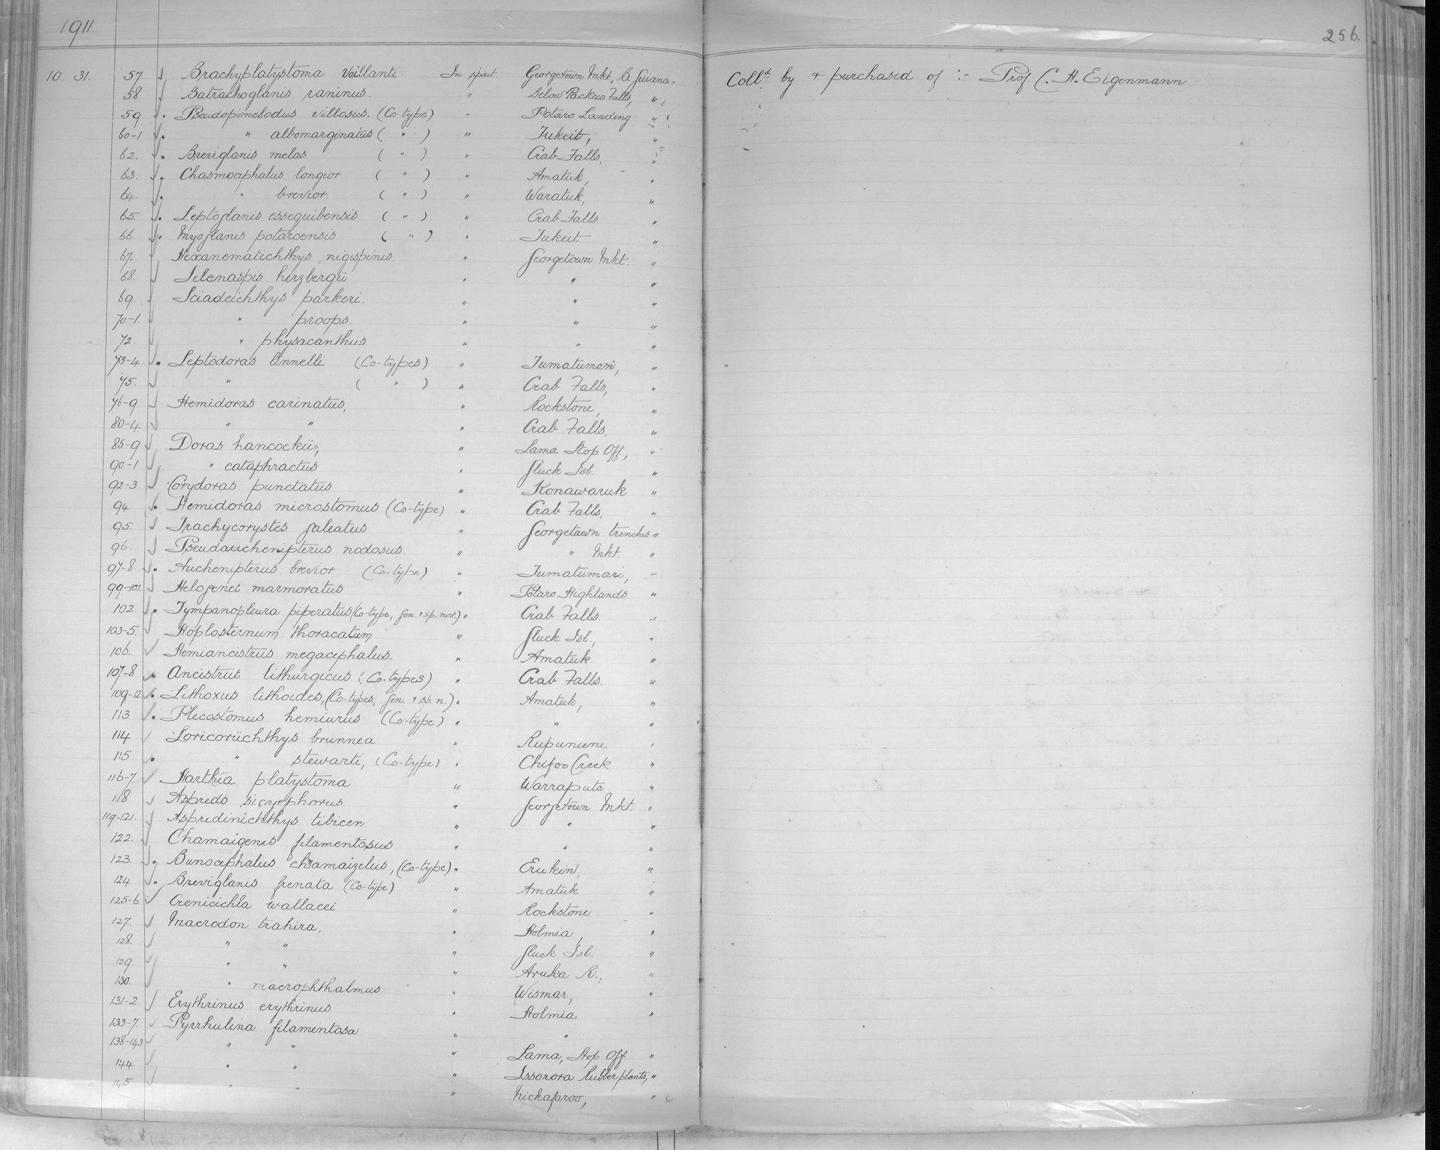 1911.
256.
10. 31. 57 Brachyplatystoma Vaillanti In spirit Georgetown Mkt, B. Guiana.
Coll.d by & purchased of :- Prof C. H. Eigenmann
58 Batrachoglanis raninus. " Below Packeoo Falls, "
59 Pseudopimelodus villosus. (Co type) " Potaro Landing "
60-1 " albomarginatus ( " ) " Tukeit, "
62. Breviglanis melas ( " ) " Crab Falls, "
63. Chasmocephalus longior ( " ) " Amatuk, "
64. " brevior. ( " ) " Waratuk, "
65. Leptoglanis essequibensis ( " ) " Crab Falls "
66. Myoglanis potaroensis ( " ) " Tukeit "
67. Hexanematichthys nigispinis. " Georgetown Mkt. "
68. Selenaspis herzbergii " " "
69. Sciadeichthys parkeri. " " "
70-1. " proops. " " "
72. " physacanthus " " "
73-4. Leptodoras linnelli (Co-types) " Tumatumari, "
75. " ( " ) " Crab Falls, "
76-9 Hemidoras carinatus, " Rockstone, "
80-4. " " " Crab Falls, "
85-9 Doras hancockii, " Lama Stop Off, "
90-1 " cataphractus " Gluck Isl. "
92-3 Corydoras punctatus " Konawaruk "
94 Hemidoras microstomus (Co-type) " Crab Falls, "
95. Trachycorystes galeatus " Georgetown trenches "
96. Pseudauchenipterus nodosus. " " Mkt. "
97-8. Auchenipterus brevior (Co-type) " Tumatumari, "
99-101. Helogenes marmoratus " Potaro Highlands "
102. Tympanopleura piperatus (Co-type, gen. & sp. nov.) " Crab Falls. "
103-5. Hoplosternum thoracatum " Gluck Isl., "
106. Hemiancistrus megacephalus. " Amatuk "
107-8 Ancistrus lithurgicus (Co-types) " Crab Falls. "
109-12 Lithoxus lithoides, (Co-types, gen. & sp. n.) " Amatuk, "
113 Plecostomus hemiurus (Co-type) " " "
114 Loricariichthys brunnea " Rupununi "
115 " stewarti, (Co-type) " Chipoo Creek "
116-7 Harttia platystoma " Warraputa "
118 Aspredo sicyophorus " Georgetown Mkt. "
119-121. Aspredinichthys tibicen " " "
122. Chamaigenes filamentosus " " "
123. Bunocephalus chamaizelus, (Co-type) " Erukin, "
124 Breviglanis frenata (Co-type) " Amatuk "
125-6 Crenicichla wallacei " Rockstone "
127. Macrodon trahira, " Holmia, "
128. " " " Gluck Isl. "
129. " " " Aruka R., "
130. " macrophthalmus " Wismar, "
131-2. Erythrinus erythrinus " Holmia "
133-7. Pyrrhulina filamentosa " " "
138-143 " " " Lama, Stop Off. "
144 " " " Issorora Rubber plants, "
145 " " " Nickaparoo, "